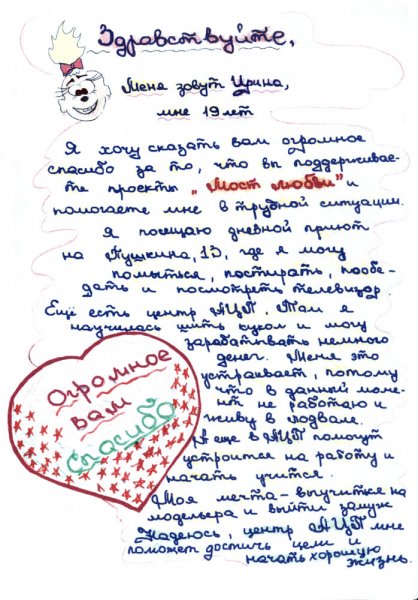 Здравствуйте,
Меня зовут Ирина,
мне 19 лет
Я хочу сказать вам огромное
спасибо за то, что вы поддерживае-
те проекты „Мост любви" и
помогаете мне в трудной ситуации.
Я посещаю дневной приют
на Пушкина, 13, где я могу
помыться, постирать, пообе-
дать и посмотреть телевизор
Ещё есть центр АЦП, Там я
научилась шить кукол и могу
зарабатывать немного
денег. Меня это
устраивает, потому
что в данный моме-
нт не работаю и
живу в подвале.
А еще в АЦП помогут
устроится на работу и
начать учится.
Моя мечта - выучиться на
модельера и выйти замуж
Надеюсь, центр АЦП мне
поможет достичь цели и
начать хорошую
жизнь.
Огромное
вам
Спасибо